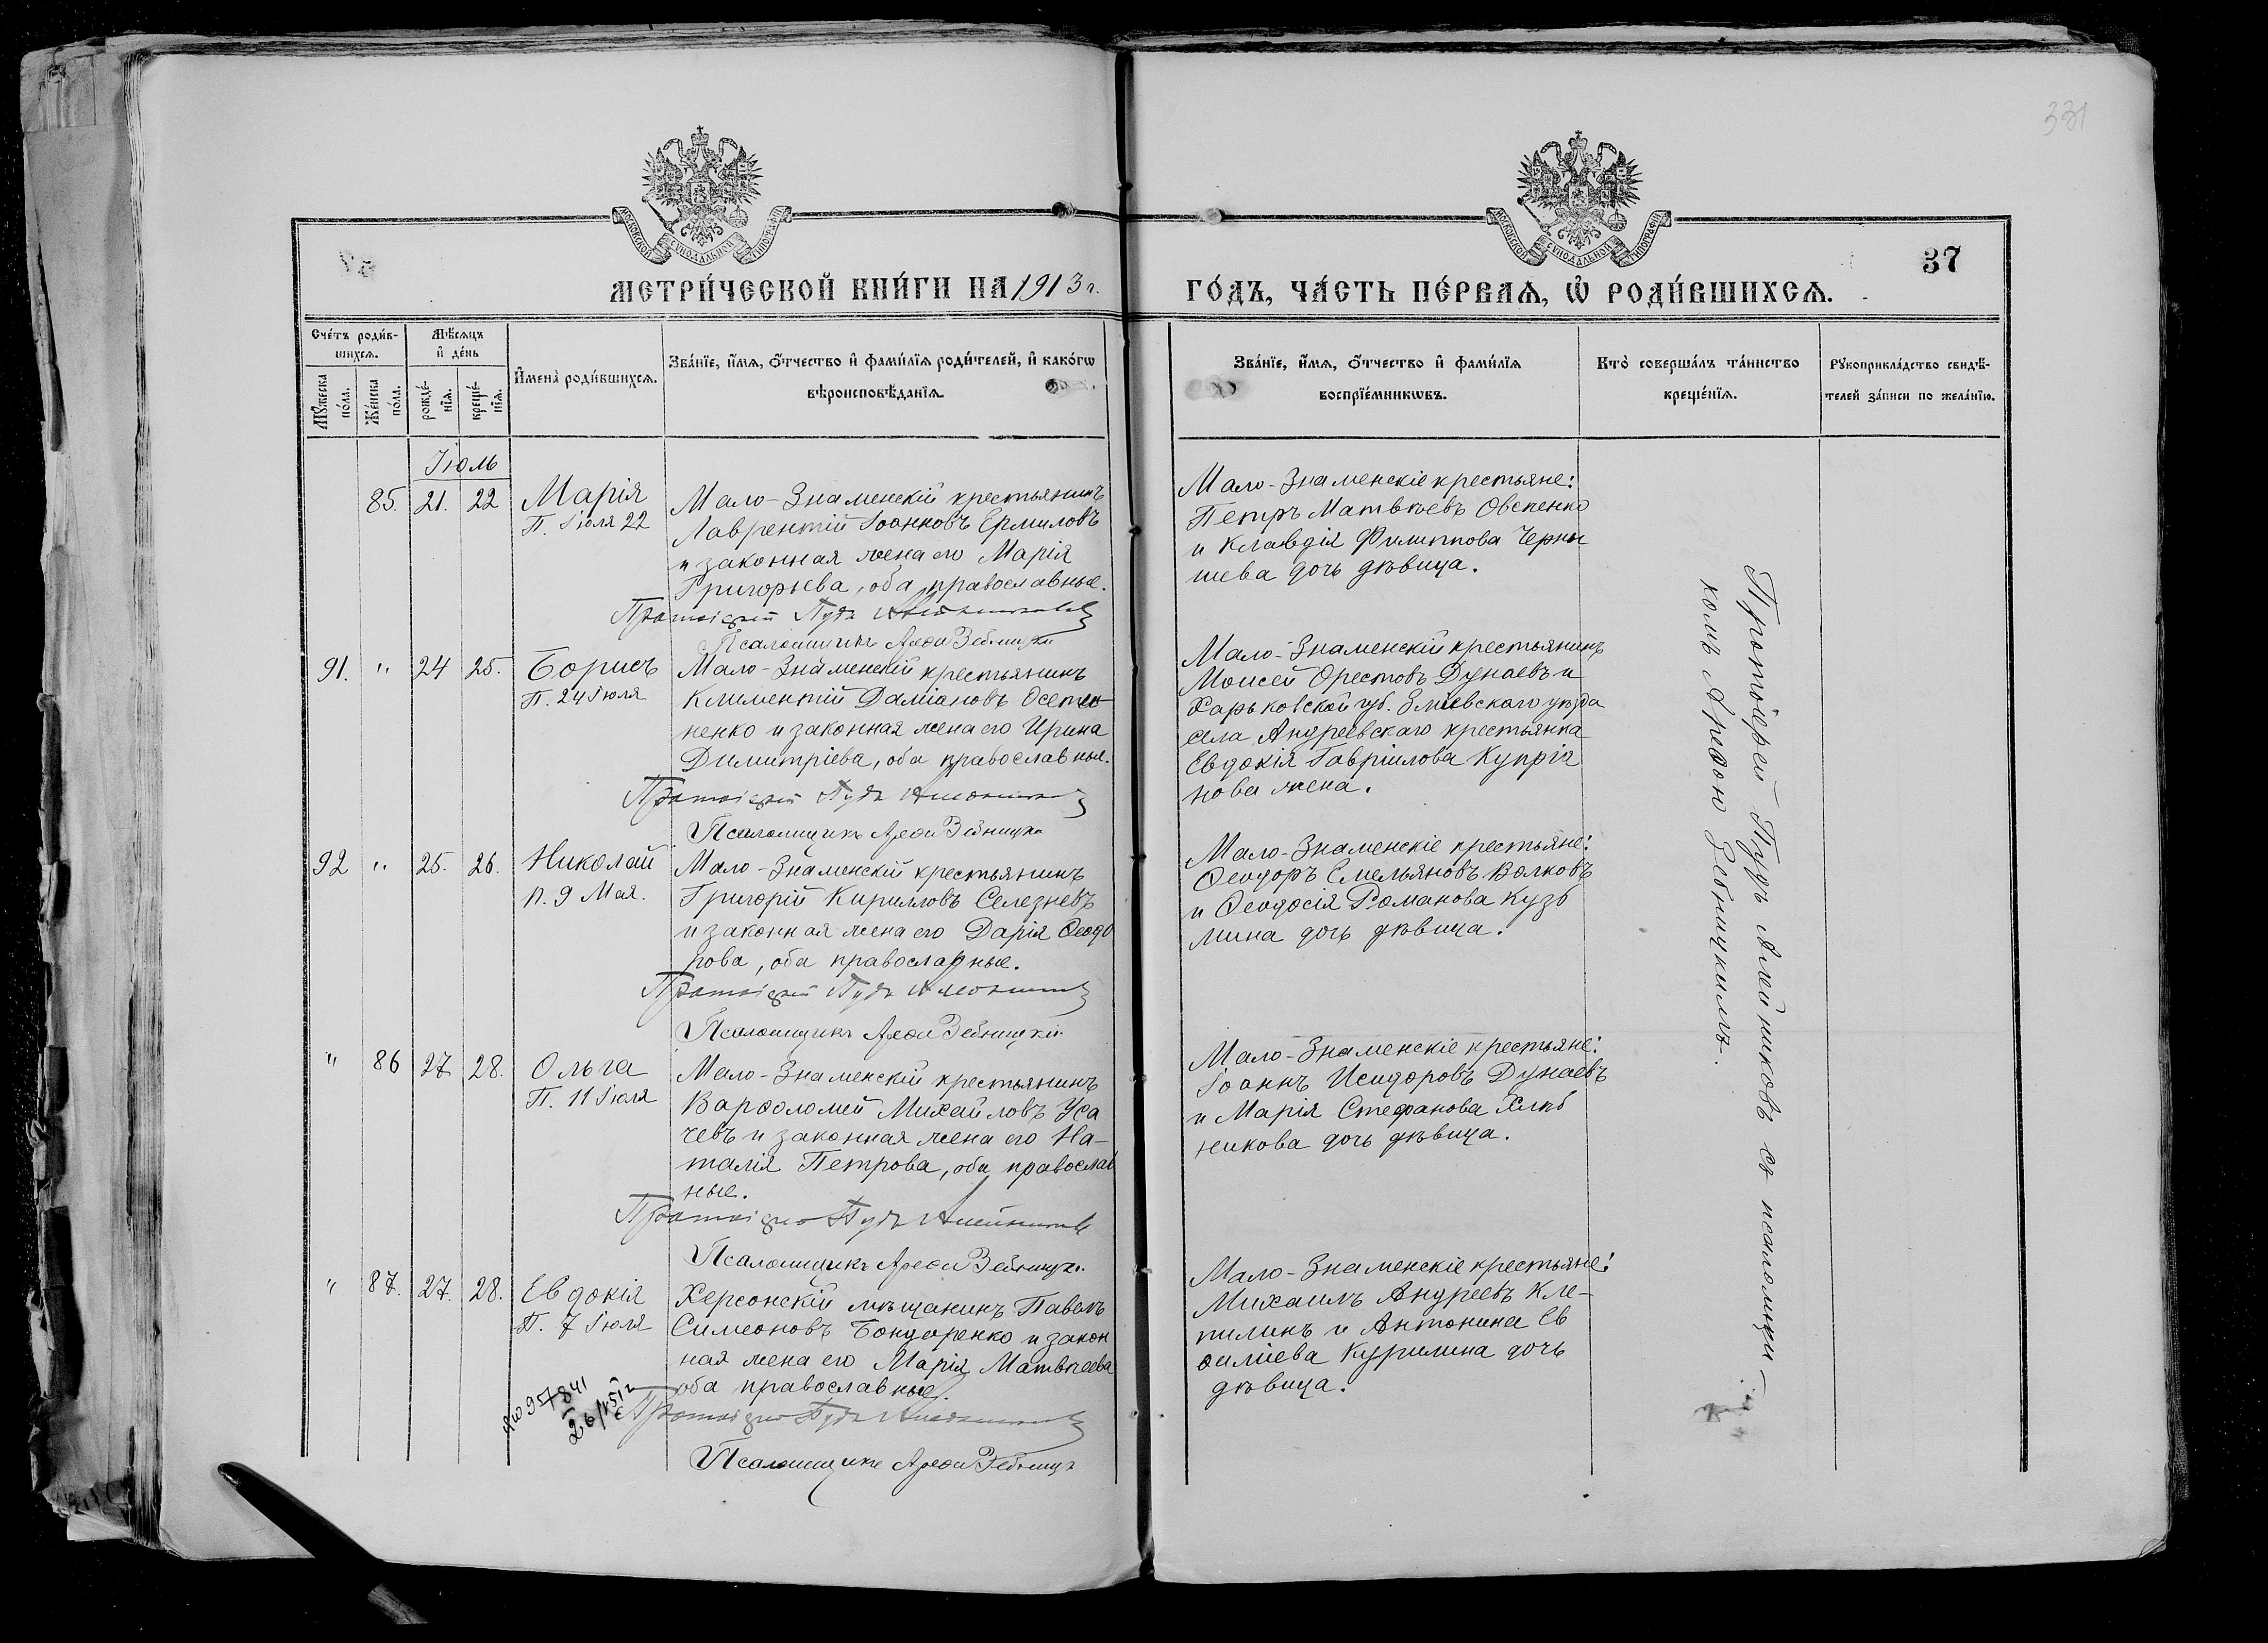 331
МОСКОВСКОЙ СѴНОДАЛЬНОЙ ТИПОГРАФІИ
МОСКОВСКОЙ СѴНОДАЛЬНОЙ ТИПОГРАФІИ
37
МЕТРИ́ЧЕСКОЙ КНИ́ГИ НА 1913 г.
ГО́ДЪ, ЧА́СТЬ ПЕ́РВАѦ, Ѡ҆ РОДИ́ВШИХСѦ.
Сче́тъ роди́в-
шихсѧ.
Мꙋ́жеска по́ла.
Же́нска по́ла.
Мѣ́сѧцъ
и҆ де́нь
рожде́-
нїѧ.
креще́-
нїѧ.
И҆мена̀ роди́вшихсѧ.
Зва́нїе, и҆́мѧ, ѻ҆́тчество и҆ фами́лїѧ роди́телей, и҆ како́гѡ
вѣроисповѣ́данїѧ.
Зва́нїе, и҆́мѧ, ѻ҆́тчество и҆ фами́лїѧ
воспрїе́мникѡвъ.
Кто̀ соверша́лъ та́инство
креще́нїѧ.
Рꙋкоприкла́дство свидѣ́-
телей за́писи по жела́нїю.
Іюль
85. 21. 22 Марія
П. Іюля 22
Мало-Знаменскій крестьянинъ
Лаврентій Іоанновъ Ермиловъ
и законная жена его Марія
Григорьева, оба православные.
Протоіерей Пудъ Алейниковъ
Псаломщикъ Арефа Зебницкій
Мало-Знаменскіе крестьяне:
Петръ Матвѣевъ Овсненко
и Клавдія Филиппова Черны
шева дочь дѣвица.
91. " 24 25. Борисъ
П. 24 Іюля
Мало-Знаменскій крестьянинъ
Климентій Даміановъ Осетно
ненко и законная жена его Ирина
Димитріева, оба православные.
Протоіерей Пудъ Алейниковъ
Псаломщикъ Арефа Зебницкій
Мало-Знаменскій крестьянинъ
Моисей Орестовъ Дунаевъ и
Харьковской губ. Зміевскаго уѣзда
села Андреевскаго крестьянка
Евдокія Гавріилова Купрія
нова жена.
92 " 25. 26. Николай
П. 9 Мая.
Мало-Знаменскій крестьянинъ
Григорій Кирилловъ Селезневъ
и законная жена его Дарія Ѳеодо
рова, оба православные.
Протоіерей Пудъ Алейниковъ
Псаломщикъ Арефа Зебницкій
Мало-Знаменскіе крестьяне:
Ѳеодоръ Емельяновъ Волковъ
и Ѳеодосія Романова Кузь
мина дочь дѣвица.
" 86 27 28. Ольга
П. 11 Іюля
Мало-Знаменскій крестьянинъ
Варѳоломей Михайловъ Уса
чевъ и законная жена его На-
талія Петрова, оба православ
ные.
Протоіерей Пудъ Алейниковъ
Псаломщикъ Арефа Зебницкій
Мало-Знаменскіе крестьяне:
Іоаннъ Исидоровъ Дунаевъ
и Марія Стефанова Хлѣб
никова дочь дѣвица.
" 87. 27. 28. Евдокія
П. 7 Іюля
Херсонскій мѣщанинъ Павелъ
Симеоновъ Бондаренко и закон
ная жена его Марія Матвѣева
оба православные.
Протоіерей Пудъ Алейниковъ
Псаломщикъ Арефа Зебницкій
Мало-Знаменскіе крестьяне:
Михаилъ Андреевъ Кле-
пилинъ и Антонина Ев
ѳиміева Курилина дочь
дѣвица.
Протоіерей Пудъ Алейниковъ съ псаломщи-
комъ Арефою Зебницкимъ.